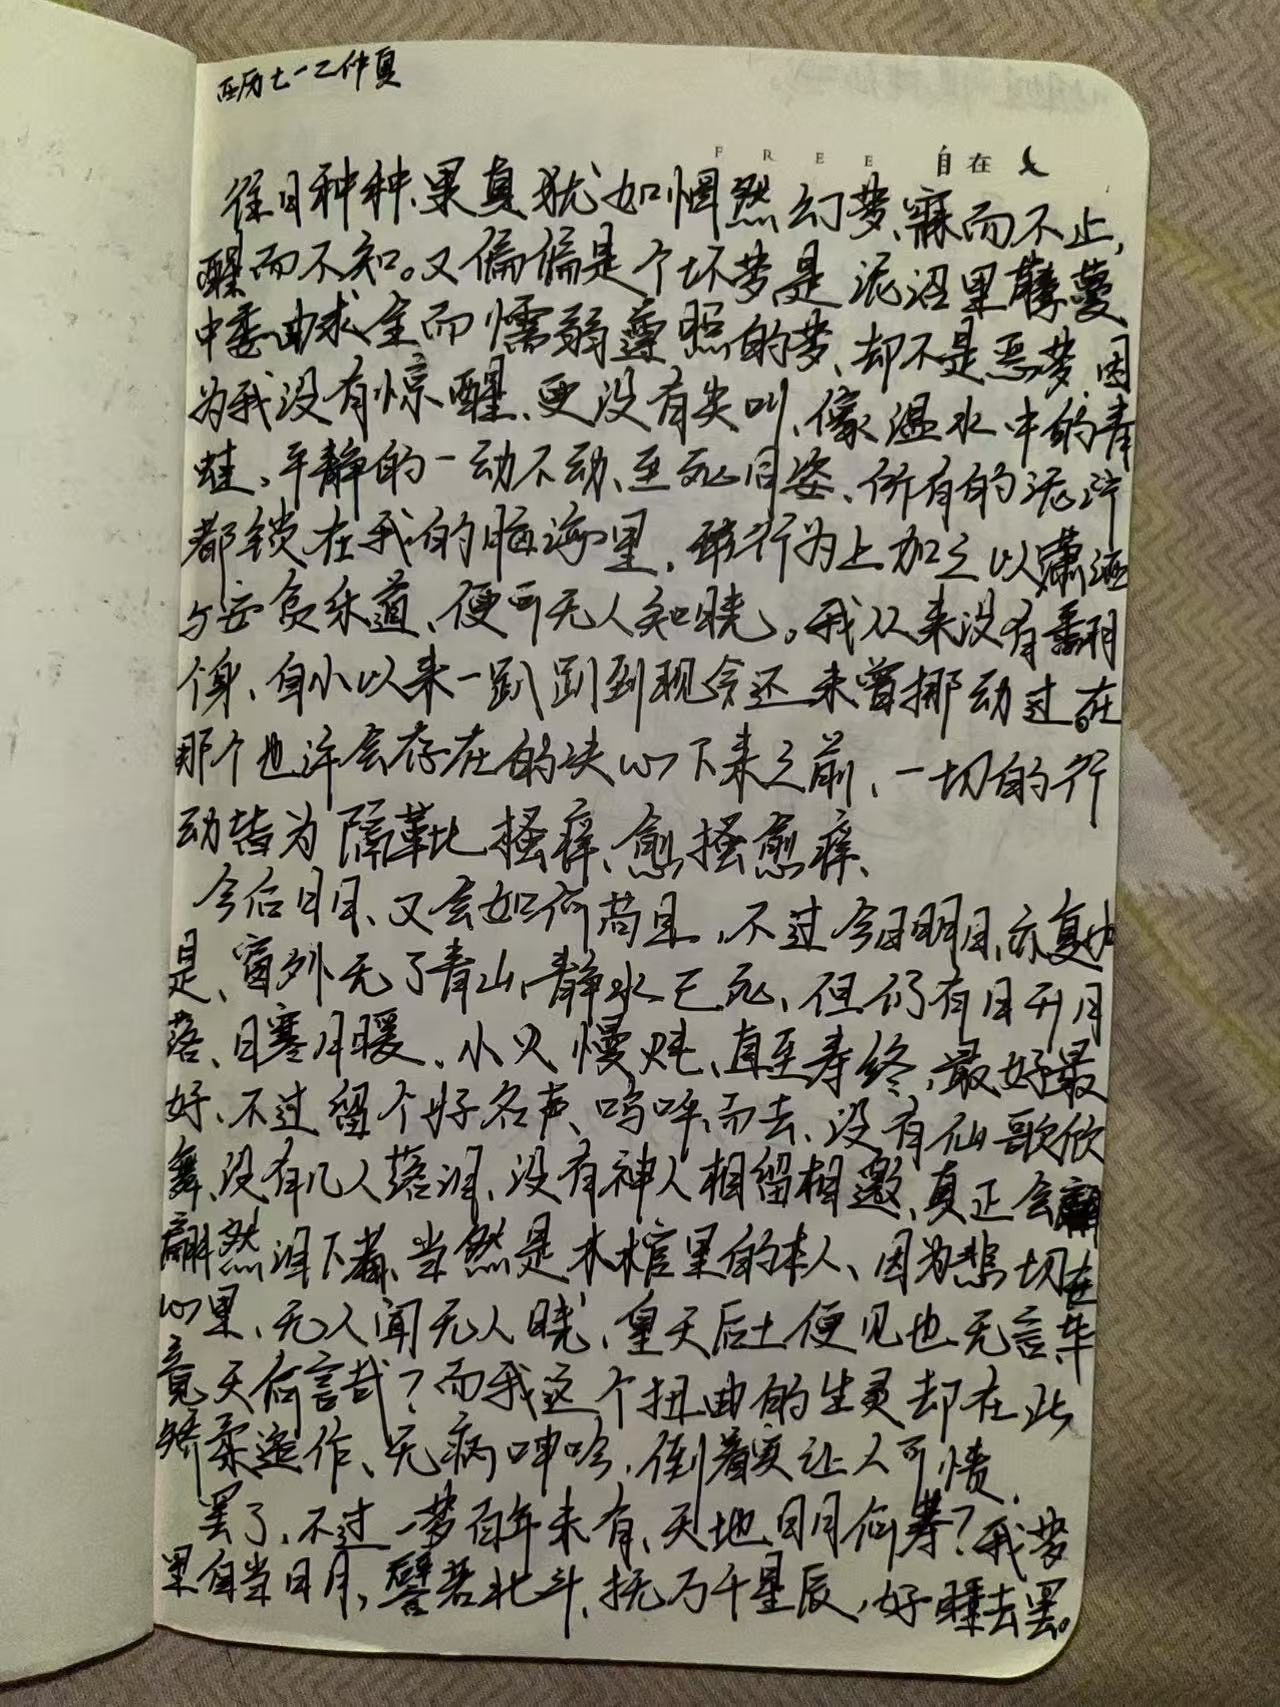 西历七一二仲夏
FREE 自在
往日种种、果真犹如惘然幻梦、寐而不止，
醒而不知。又偏偏是个坏梦是泥沼里藤蔓
中委曲求全而懦弱遵照的梦、却不是恶梦、因
为我没有惊醒、更没有尖叫、像温水中的青
蛙、平静的一动不动、至死同姿、所有的泥泞
都锁在我的脑海里，行为上加之以潇洒
与安贫乐道、便可无人知晓。我从来没有翻
个身、自小以来一趴趴到现今还未曾挪动过。在
那个也许会存在的决心下来之前、一切的行
动皆为隔靴搔痒、愈搔愈痒、
今后日月、又会如何苟且，不过今日明日、亦复如
是、窗外无了青山、静水已死、但仍有日升月
落、日寒月暖、小火慢炖、直至寿终，最好最
好、不过留个好名声、呜呼而去、没有仙歌欣
舞、没有几人落泪、没有神人相留相邀、真正会
翩然泪下者、当然是木棺里的本人、因为悲切在
心里、无人闻无人晓、皇天后土便见也无言、毕
竟天何言哉？而我这个扭曲的生灵却在此
矫柔造作、无病呻吟，倒着实让人可愤，
罢了，不过一梦百年未有、天地日月何寿？我梦
里自当日月，譬若北斗、抚万千星辰，好睡去罢。